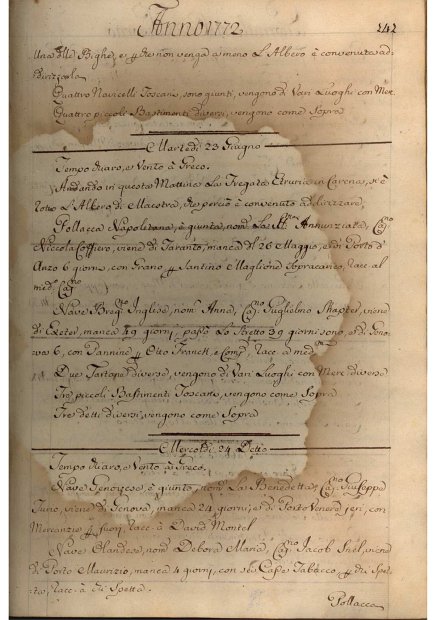 Anno 1772
242
Una delle Bighe, e p che non venga a meno L'Albero è convenuta ad
Dirizzarla
Quattro Navicelli Toscani, sono giunti, vengono di Vari Luoghi con Mer.
Quattro piccoli Bastimenti diversi, vengono come Sopra
Martedì 23 Giugno
Tempo chiaro, e Vento à Greco.
Andando in questa Mattina La Fregata Etruria in Carena, si è
rotto L'Albero di Maestra, che perciò è convenuto
Pollacca Napolitana, è giunta, nom. La SS. Annunziata, Cap.no
Niccola Coffiero, viene di Taranto, manca dl 26 Maggio, e di Porto d'
Anzo 6 giorni, con Grano p Santino Maglione Sopracarico, Racc. al
med. Cap.no
Nave Brig.no Inglese, nom. Anna, Cap.no Guglielmo Shapter, viene
di Exeter, manca 49 giorni, passò Lo Stretto 39 giorni sono, e di Geno-
va 6, con Pannine p Otto Franck, e Comp. Racc. a med.mi
Due Tartane diverse, vengono di Vari Luoghi con Merc. diverse
Tre piccoli Bastimenti Toscani, vengono come Sopra
Tre detti diversi, vengono come Sopra
Mercoldì 24 Detto
Tempo chiaro, e Vento à Greco.
Nave Genovese, è giunta, nom. La Benedetta, Cap.no Giuseppe
viene di Genova, manca 24 giorni, e di Porto Venere jeri, con
Mercanzie p fuori, Racc. à David Montel
Nave Olandese, nom. Debora Maria, Cap. Jacob Snel, viene
di Porto Maurizio, manca 4 giorni, con Casse Tabacco, p chi Spet-
ta, Racc. à chi Spetta.
Pollacca